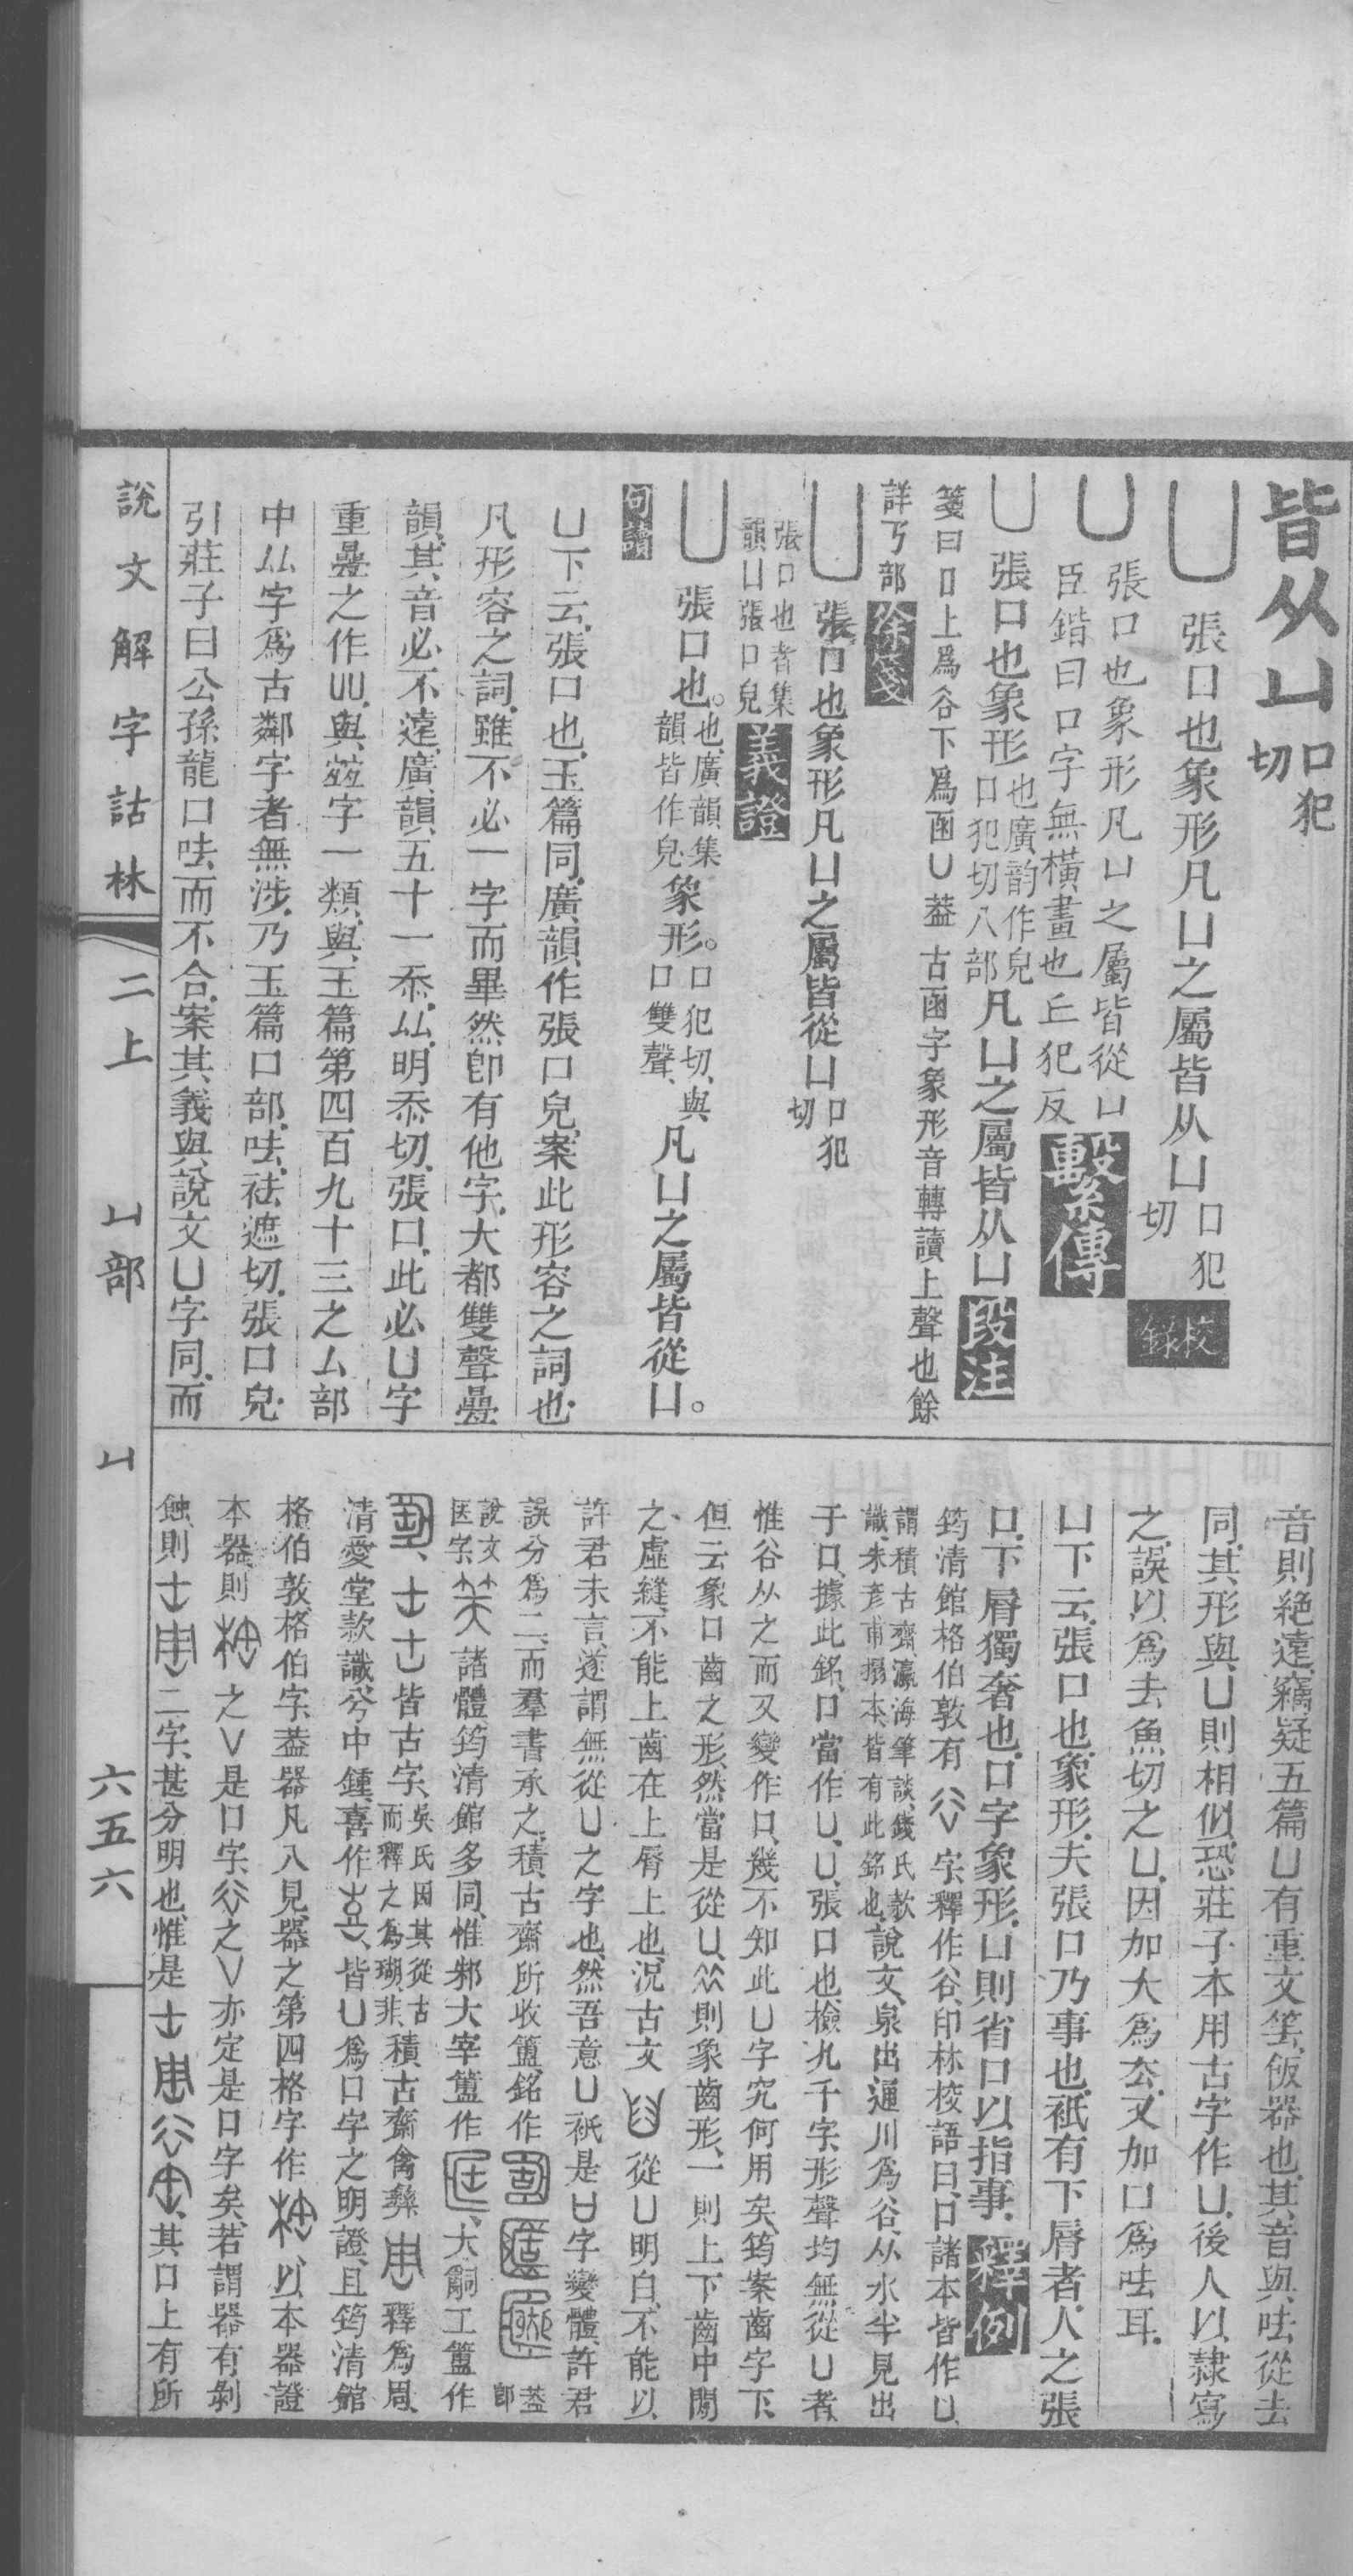 皆从凵口犯切
凵張口也象形凡凵之屬皆从凵口犯切校錄
凵張口也象形凡凵之屬皆從凵
臣鍇曰口字無橫畫也丘犯反繫傳
凵張口也象形也廣韵作皃口犯切八部凡凵之屬皆从凵段注
箋曰口上爲谷下爲㢴凵葢古㢴字象形音轉讀上聲也餘
詳丂部徐箋
凵張口也象形凡凵之屬皆從凵口犯切
張口也者集韻凵張口皃義證
凵張口也。也廣韻集韻皆作皃象形。口犯切、與口雙聲、凡凵之屬皆從凵。
句讀
凵下云、張口也、玉篇同、廣韻、作張口皃、案此形容之詞也、
凡形容之詞、雖不必一字而畢、然卽有他字、大都雙聲疊
韻、其音必不遠、廣韻、五十一忝、厸、明忝切、張口、此必凵字
重疊之作凵凵、與㚘字一類、與玉篇第四百九十三之厶部
中厸字爲古鄰字者無涉、乃玉篇口部、呿、袪遮切、張口皃、
引莊子曰公孫龍口呿而不合、案其義與說文凵字同、而
音則絶遠、竊疑五篇凵有重文筶、飯器也、其音與呿從去
同、其形與凵則相似、恐莊子本用古字作凵、後人以隸寫
之、誤以爲去魚切之凵、因加大爲厺、又加口爲呿耳、
凵下云、張口也、象形、夫張口乃事也、祇有下脣者、人之張
口、下脣獨奢也、口字象形、凵則省口以指事、釋例
筠清館格伯敦有 字、釋作谷、印林校語曰、口諸本皆作凵、
謂積古齋、瀛海筆談、錢氏款識、朱彥甫搨本、皆有此銘也、說文、泉出通川爲谷、从水半見出
于口、據此銘、口當作凵、凵、張口也、檢九千字、形聲均無從凵者、
惟谷从之而又變作口、幾不知此凵字究何用矣、筠案齒字下、
但云象口齒之形、然當是從凵、𠈌則象齒形、一則上下齒中閒
之虛縫、不能上齒在上脣上也、況古文 從凵明白、不能以
許君未言、遂謂無從凵之字也、然吾意凵祇是口字變體、許君
誤分爲二、而羣書承之、積古齋所收簠銘作 葢卽
說文医字、 諸體筠清館多同、惟邾大宰簠作 、大嗣工簠作
、 皆古字、吳氏因其從古而釋之爲瑚、非、積古齋禽彝 釋爲周、
清愛堂款識、兮中鍾、喜作 、皆凵爲口字之明證、且筠清館
格伯敦、格伯字、葢器凡八見、器之第四格字作 、以本器證
本器、則 之 是口字、 之 亦定是口字矣、若謂器有剝
蝕、則 二字、甚分明也、惟是 、其口上有所
說文解字詁林 二上 凵部 凵 六五六